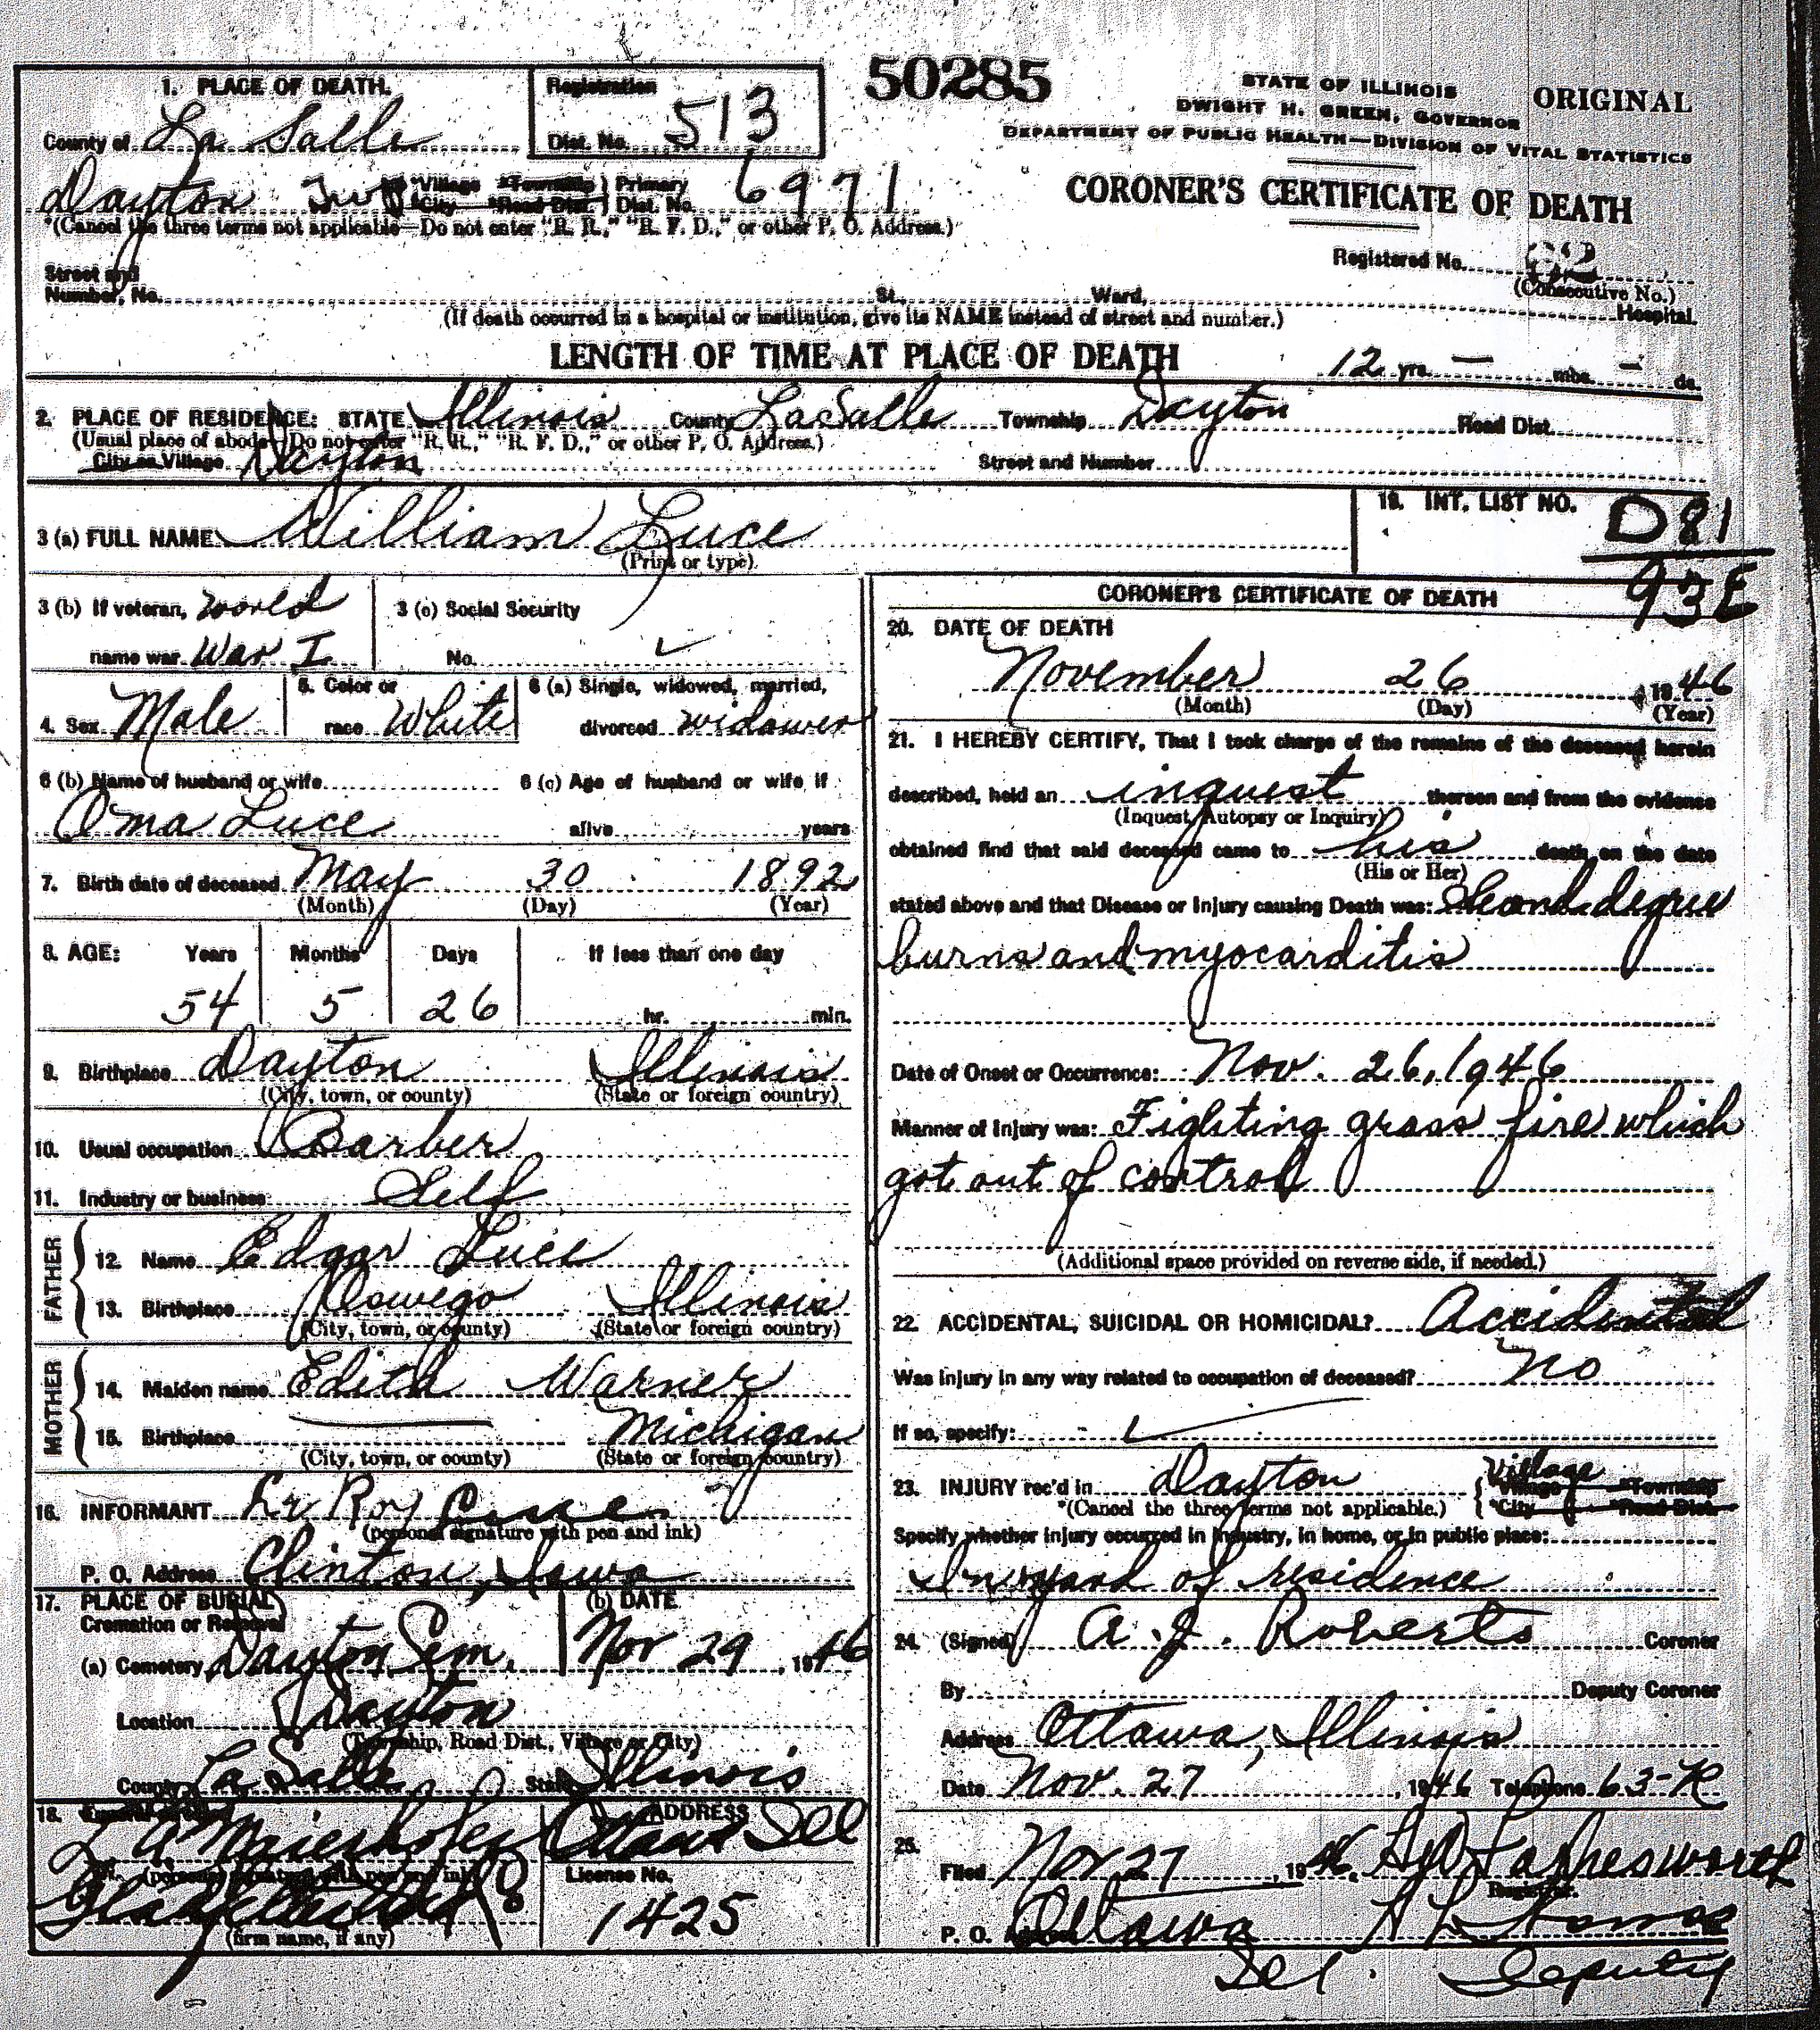 50285
STATE OF ILLINOIS
DWIGHT H. GREEN, GOVERNOR
ORIGINAL
DEPARTMENT OF PUBLIC HEALTH—DIVISION OF VITAL STATISTICS
CORONER'S CERTIFICATE OF DEATH
1. PLACE OF DEATH.
Registration
County of La Salle
Dist. No. 513
Dayton Twp *Village *Township Primary
*City *Road Dist. Dist. No. 6971
*(Cancel the three terms not applicable—Do not enter "R. R.," "R. F. D.," or other P. O. Address.)
Registered No.
(Consecutive No.)
Street and
Number, No. St., Ward, Hospital.
(If death occurred in a hospital or institution, give its NAME instead of street and number.)
LENGTH OF TIME AT PLACE OF DEATH 12 yrs. — mbs. — ds.
2. PLACE OF RESIDENCE: STATE Illinois County LaSalle Township Dayton Road Dist.
(Usual place of abode) (Do not enter "R. R.," "R. F. D.," or other P. O. Address.)
City or Village Dayton Street and Number
3 (a) FULL NAME William Luce
(Print or type).
19. INT. LIST NO. D81
93E
3 (b) If veteran, World
name war War I
3 (c) Social Security
No.
4. Sex Male
5. Color or
race White
6 (a) Single, widowed, married,
divorced widower
6 (b) Name of husband or wife
Oma Luce
6 (c) Age of husband or wife if
alive years
7. Birth date of deceased May 30 1892
(Month) (Day) (Year)
8. AGE: Years Months Days If less than one day
54 5 26 hr. min.
9. Birthplace Dayton Illinois
(City, town, or county) (State or foreign country)
10. Usual occupation Barber
11. Industry or business Self
FATHER
12. Name Edgar Luce
13. Birthplace Oswego Illinois
(City, town, or county) (State or foreign country)
MOTHER
14. Maiden name Edith Warner
15. Birthplace — Michigan
(City, town, or county) (State or foreign country)
16. INFORMANT Le Roy
(personal signature with pen and ink)
P. O. Address Clinton, Iowa
17. PLACE OF BURIAL
Cremation or Removal
(b) DATE
(a) Cemetery Dayton Cem. Nov 29, 1946
Location Dayton
(Township, Road Dist., Village or City)
County La Salle State Illinois
18.
ADDRESS
Ottawa Ill
(personal signature with pen and ink)
License No.
1425
(firm name, if any)
CORONER'S CERTIFICATE OF DEATH
20. DATE OF DEATH
November 26 1946
(Month) (Day) (Year)
21. I HEREBY CERTIFY, That I took charge of the remains of the deceased herein
described, held an inquest thereon and from the evidence
(Inquest, Autopsy or Inquiry)
obtained find that said deceased came to his death on the date
(His or Her)
stated above and that Disease or Injury causing Death was: Second degree
burns and myocarditis
Date of Onset or Occurrence: Nov. 26, 1946
Manner of Injury was: Fighting grass fire which
got out of control
(Additional space provided on reverse side, if needed.)
22. ACCIDENTAL, SUICIDAL OR HOMICIDAL? Accidental
Was injury in any way related to occupation of deceased? No
If so, specify:
23. INJURY rec'd in Dayton Village
*Village *Township
*(Cancel the three terms not applicable.) *City *Road Dist.
Specify whether injury occurred in industry, in home, or in public place:
In yard of residence
24. (Signed) A. J. Roberts Coroner
By Deputy Coroner
Address Ottawa, Illinois
Date Nov. 27, 1946 Telephone 63-R
25.
Filed Nov 27, 1946.
Registrar.
P. O. Address Ottawa
Ill. Deputy